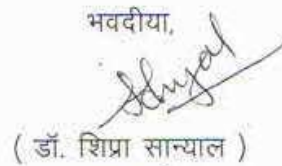 भवदीया,
( डॉ. शिप्रा सान्याल )